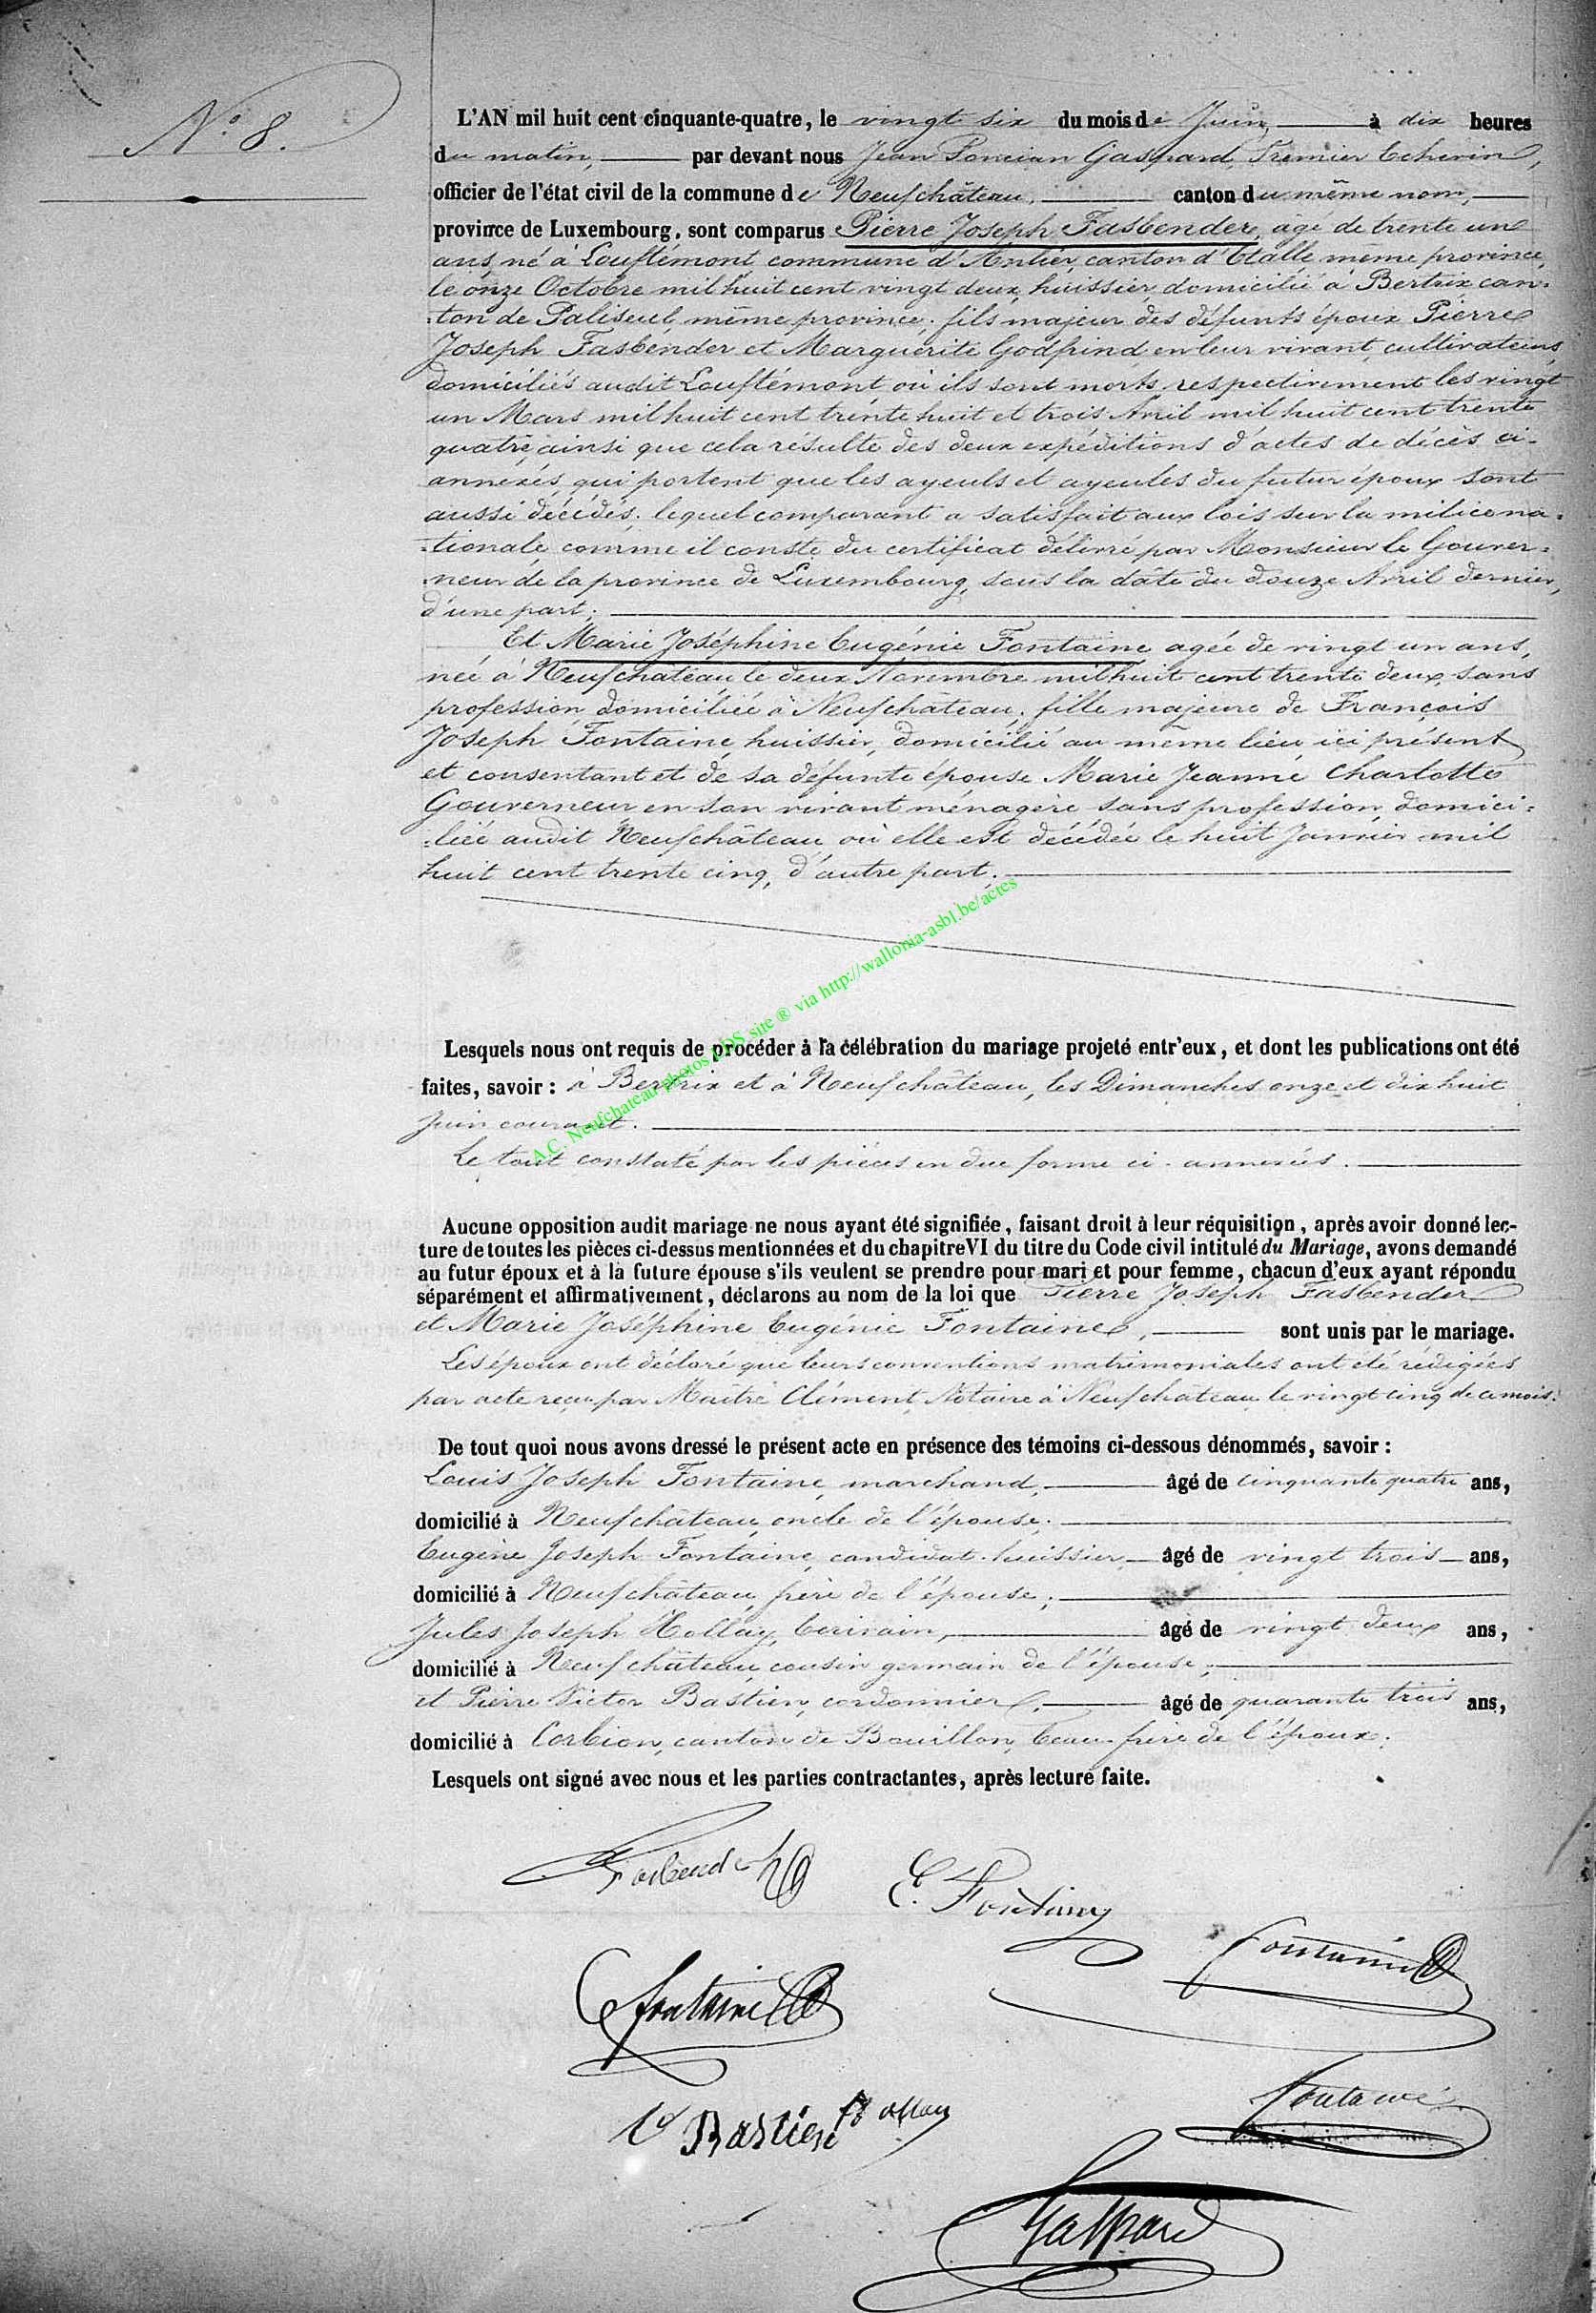 N.° 8.
L'AN mil huit cent cinquante-quatre, le vingt six du mois de Juin, à dix heures
du matin, par devant nous Jean Poncian Gaspard, Premier Echevin,
officier de l'état civil de la commune de Neufchâteau, canton du même nom,
province de Luxembourg, sont comparus Pierre Joseph Fasbender, agé de trente un
ans, né à Louftémont, commune d'Anlier, canton d'Etalle même province,
le onze Octobre mil huit cent vingt deux, huissier, domicilié à Bertrix can=
=ton de Paliseul, même province; fils majeur des défunts époux Pierre
Joseph Fasbender et Marguerite Godfrind, en leur vivant, cultivateurs
domiciliés audit Louftémont, où ils sont morts respectivement les vingt
un Mars mil huit cent trente huit et trois Avril mil huit cent trente
quatre, ainsi que cela résulte des deux expéditions d'actes de décès ci-
annexés, qui portent que les ayeuls et ayeules du futur époux sont
aussi décédés; lequel comparant a satisfait aux lois sur la milice na=
=tionale, comme il conste du certificat délivré par Monsieur le Gouver=
=neur de la province de Luxembourg, sous la date du douze Avril dernier,
d'une part;
Et Marie Joséphine Eugénie Fontaine agée de vingt un ans,
née à Neufchâteau, le deux Novembre mil huit cent trente deux, sans
profession, domiciliée à Neufchâteau, fille majeure de François
Joseph Fontaine, huissier, domicilié au même lieu ici présent
et consentant et de sa défunte épouse Marie Jeanne Charlotte
Gouverneur en son vivant ménagère sans profession, domici=
=liée audit Neufchâteau, où elle est décédée le huit Janvier mil
huit cent trente cinq, d'autre part;
A.C. Neufchateau photos LDS site ® via http://wallonia-asbl.be/actes
Lesquels nous ont requis de procéder à la célébration du mariage projeté entr'eux, et dont les publications ont été
faites, savoir : à Bertrix et à Neufchâteau, les Dimanches onze et dix huit
Juin courant.
Le tout constaté par les pièces en due forme ci-annexées.
Aucune opposition audit mariage ne nous ayant été signifiée, faisant droit à leur réquisition, après avoir donné lec-
ture de toutes les pièces ci-dessus mentionnées et du chapitre VI du titre du Code civil intitulé du Mariage, avons demandé
au futur époux et à la future épouse s'ils veulent se prendre pour mari et pour femme, chacun d'eux ayant répondu
séparément et affirmativement, déclarons au nom de la loi que Pierre Joseph Fasbender
et Marie Joséphine Eugénie Fontaine, sont unis par le mariage.
Les époux ont déclaré que leurs conventions matrimoniales ont été rédigées
par acte reçu par Maître Clément, Notaire à Neufchâteau le vingt cinq de ce mois.
De tout quoi nous avons dressé le présent acte en présence des témoins ci-dessous dénommés, savoir :
Louis Joseph Fontaine, marchand, âgé de cinquante quatre ans,
domicilié à Neufchâteau, oncle de l'épouse;
Eugène Joseph Fontaine, candidat-huissier âgé de vingt trois ans,
domicilié à Neufchâteau, frère de l'épouse;
Jules Joseph Hollay, Ecrivain, âgé de vingt deux ans,
domicilié à Neufchâteau, cousin germain de l'épouse;
et Pierre Victor Bastien, cordonnier, âgé de quarante trois ans,
domicilié à Corbion, canton de Bouillon, beau-frère de l'époux;
Lesquels ont signé avec nous et les parties contractantes, après lecture faite.
Fasbender
E. Fontaine
Fontaine
Fontaine
Bastien
Hollay
Fontaine
Gaspard